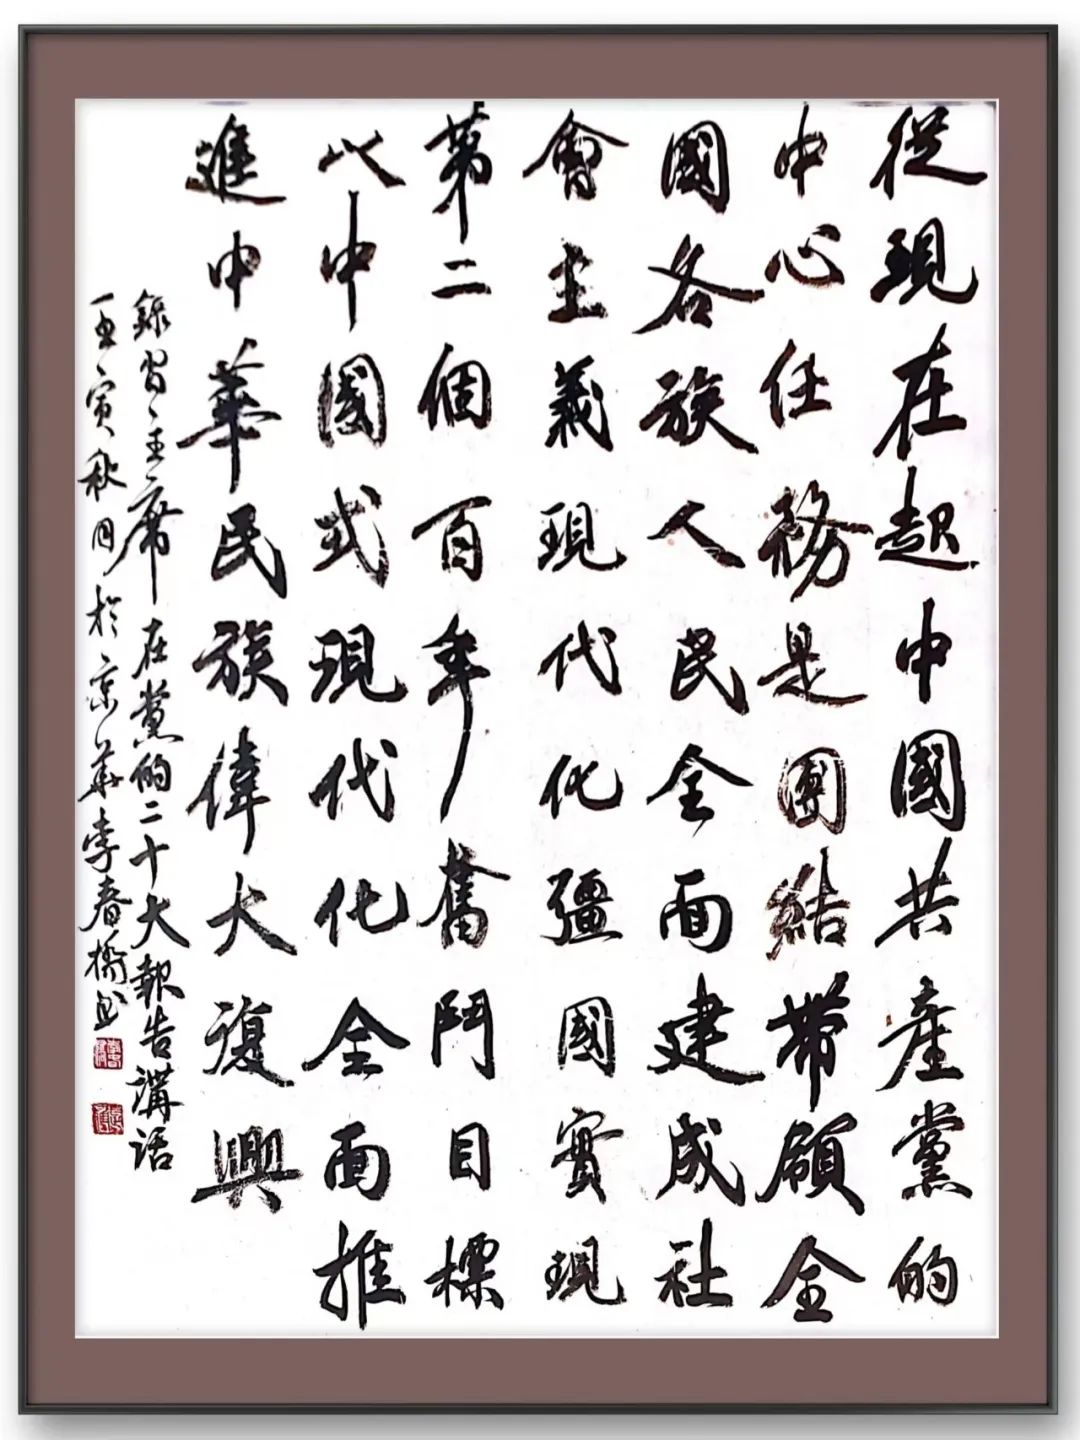 從現在起中國共產黨的
中心任務是團結帶領全
國各族人民全面建成社
會主義現代化彊國實現
第二個百年奮鬥目標
以中國式現代化全面推
進中華民族偉大復興
錄習主席在黨的二十大報告講话
壬寅秋月於京華李春橋书